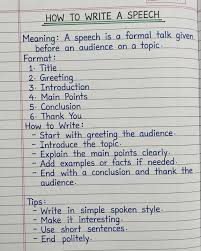 HOW TO WRITE A SPEECH
Meaning: A speech is a formal talk given
before an audience on a topic.
Format:
1. Title
2. Greeting
3. Introduction
4. Main Points
5. Conclusion
6. Thank You
How to Write:
- Start with greeting the audience.
- Introduce the topic.
- Explain the main points clearly.
- Add examples or facts if needed.
- End with a conclusion and thank the
audience.
Tips:
- Write in simple spoken style.
- Make it interesting.
- Use short sentences.
- End politely.